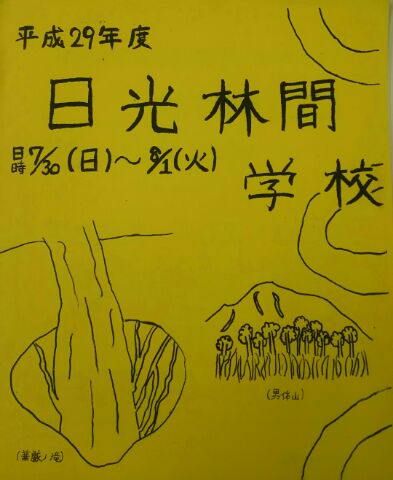 平成29年度
日光林間
学校
日時 7/30(日)〜8/1(火)
(男体山)
(華厳ノ滝)